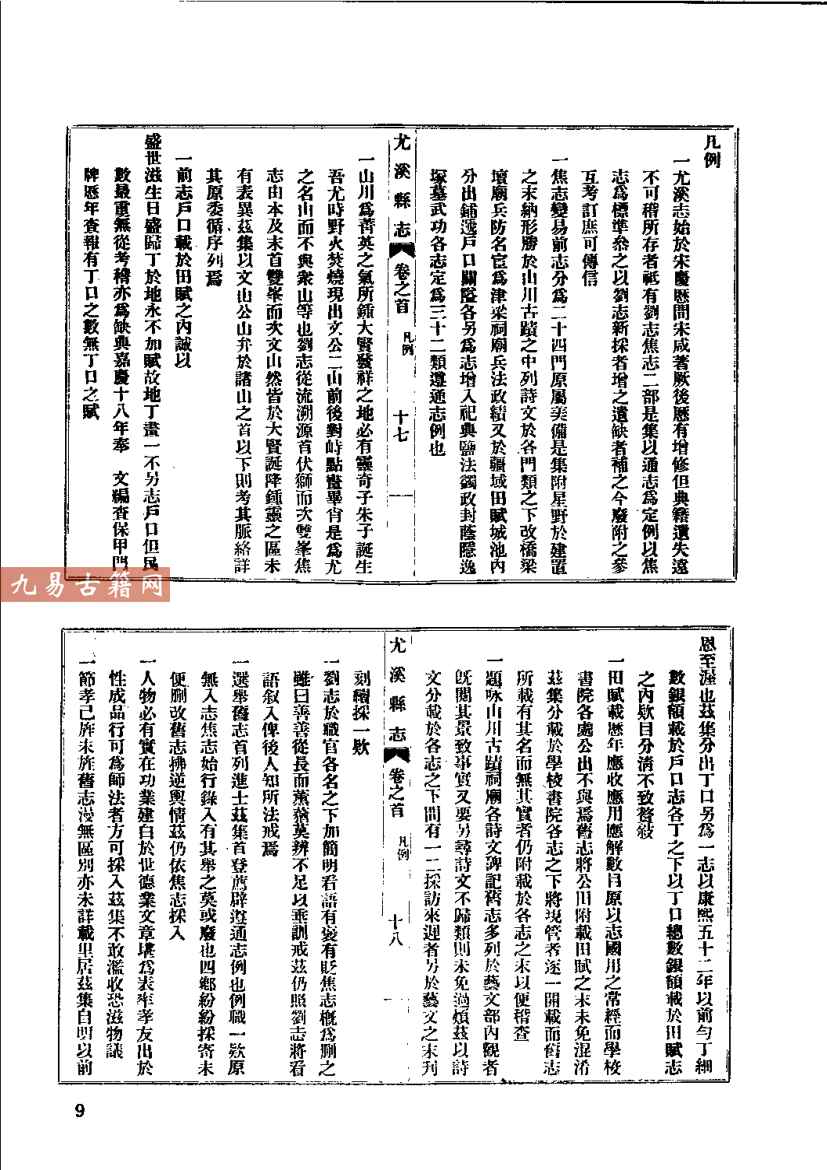 凡例
一尤溪志始於宋慶曆間宋咸著厥後歷有增修但典籍遺失遠
不可稽所存者祗有劉志焦志二部是集以通志為定例以焦
志為標準叅之以劉志新採者增之遺缺者補之今廢附之參
互考訂庶可傳信
一焦志變易前志分為二十四門原屬美備是集附星野於建置
之末納形勝於山川古蹟之中列詩文於各門類之下改橋梁
壇廟兵防名宦為津梁祠廟兵法政績又於疆域田賦城池內
分出鋪遞戶口關隘各另為志增入祀典鹽法蠲政封蔭隱逸
塚墓武功各志定為三十二類遵通志例也
尤溪縣志 卷之首 凡例 十七
一山川為菁英之氣所鍾大賢發祥之地必有靈奇子朱子誕生
吾尤時野火焚燒現出文公二山前後對峙點畫畢肖是為尤
之名山而不與衆山等也劉志從流溯源首伏獅而次雙峯焦
志由本及末首雙峯而次文山然皆於大賢誕降鍾靈之區未
有表異茲集以文山公山弁於諸山之首以下則考其脈絡詳
其原委循序列焉
一前志戶口載於田賦之內誠以
盛世滋生日盛歸丁於地永不加賦故地丁畫一不另志戶口但民
數最重無從考稽亦為缺典嘉慶十八年奉 文編查保甲門
牌歷年查報有丁口之數無丁口之賦
恩至渥也茲集分出丁口另為一志以康熙五十二年以前勻丁細
數銀額載於戶口志各丁之下以丁口總數銀額載於田賦志
之內欵目分清不致聱敍
一田賦載歷年應收應用應解數目原以志國用之常經而學校
書院各處公出不與焉舊志將公田附載田賦之末未免混淆
茲集分載於學校書院各志之下將現管者逐一開載而舊志
所載有其名而無其實者仍附載於各志之末以便稽查
一題咏山川古蹟祠廟各詩文碑記舊志多列於藝文部內觀者
旣閱其景致事實又要另尋詩文不歸類則未免過煩茲以詩
文分載於各志之下間有一二採訪來遲者另於藝文之末刋
尤溪縣志 卷之首 凡例 十八
刻續採一欵
一劉志於職官各名之下加簡明看語有褒有貶焦志槪為刪之
雖曰善善從長而薰蕕莫辨不足以垂訓戒茲仍照劉志將看
語叙入俾後人知所法戒焉
一選舉舊志首列進士茲集首登薦辟遵通志例也例職一欵原
無入志焦志始行錄入有其舉之莫或廢也四鄉紛紛採寄未
便刪改舊志拂逆輿情茲仍依焦志採入
一人物必有實在功業建白於世德業文章堪為表率孝友出於
性成品行可為師法者方可採入茲集不敢濫收恐滋物議
一節孝已旌未旌舊志漫無區別亦未詳載里居茲集自明以前
九易古籍网
9